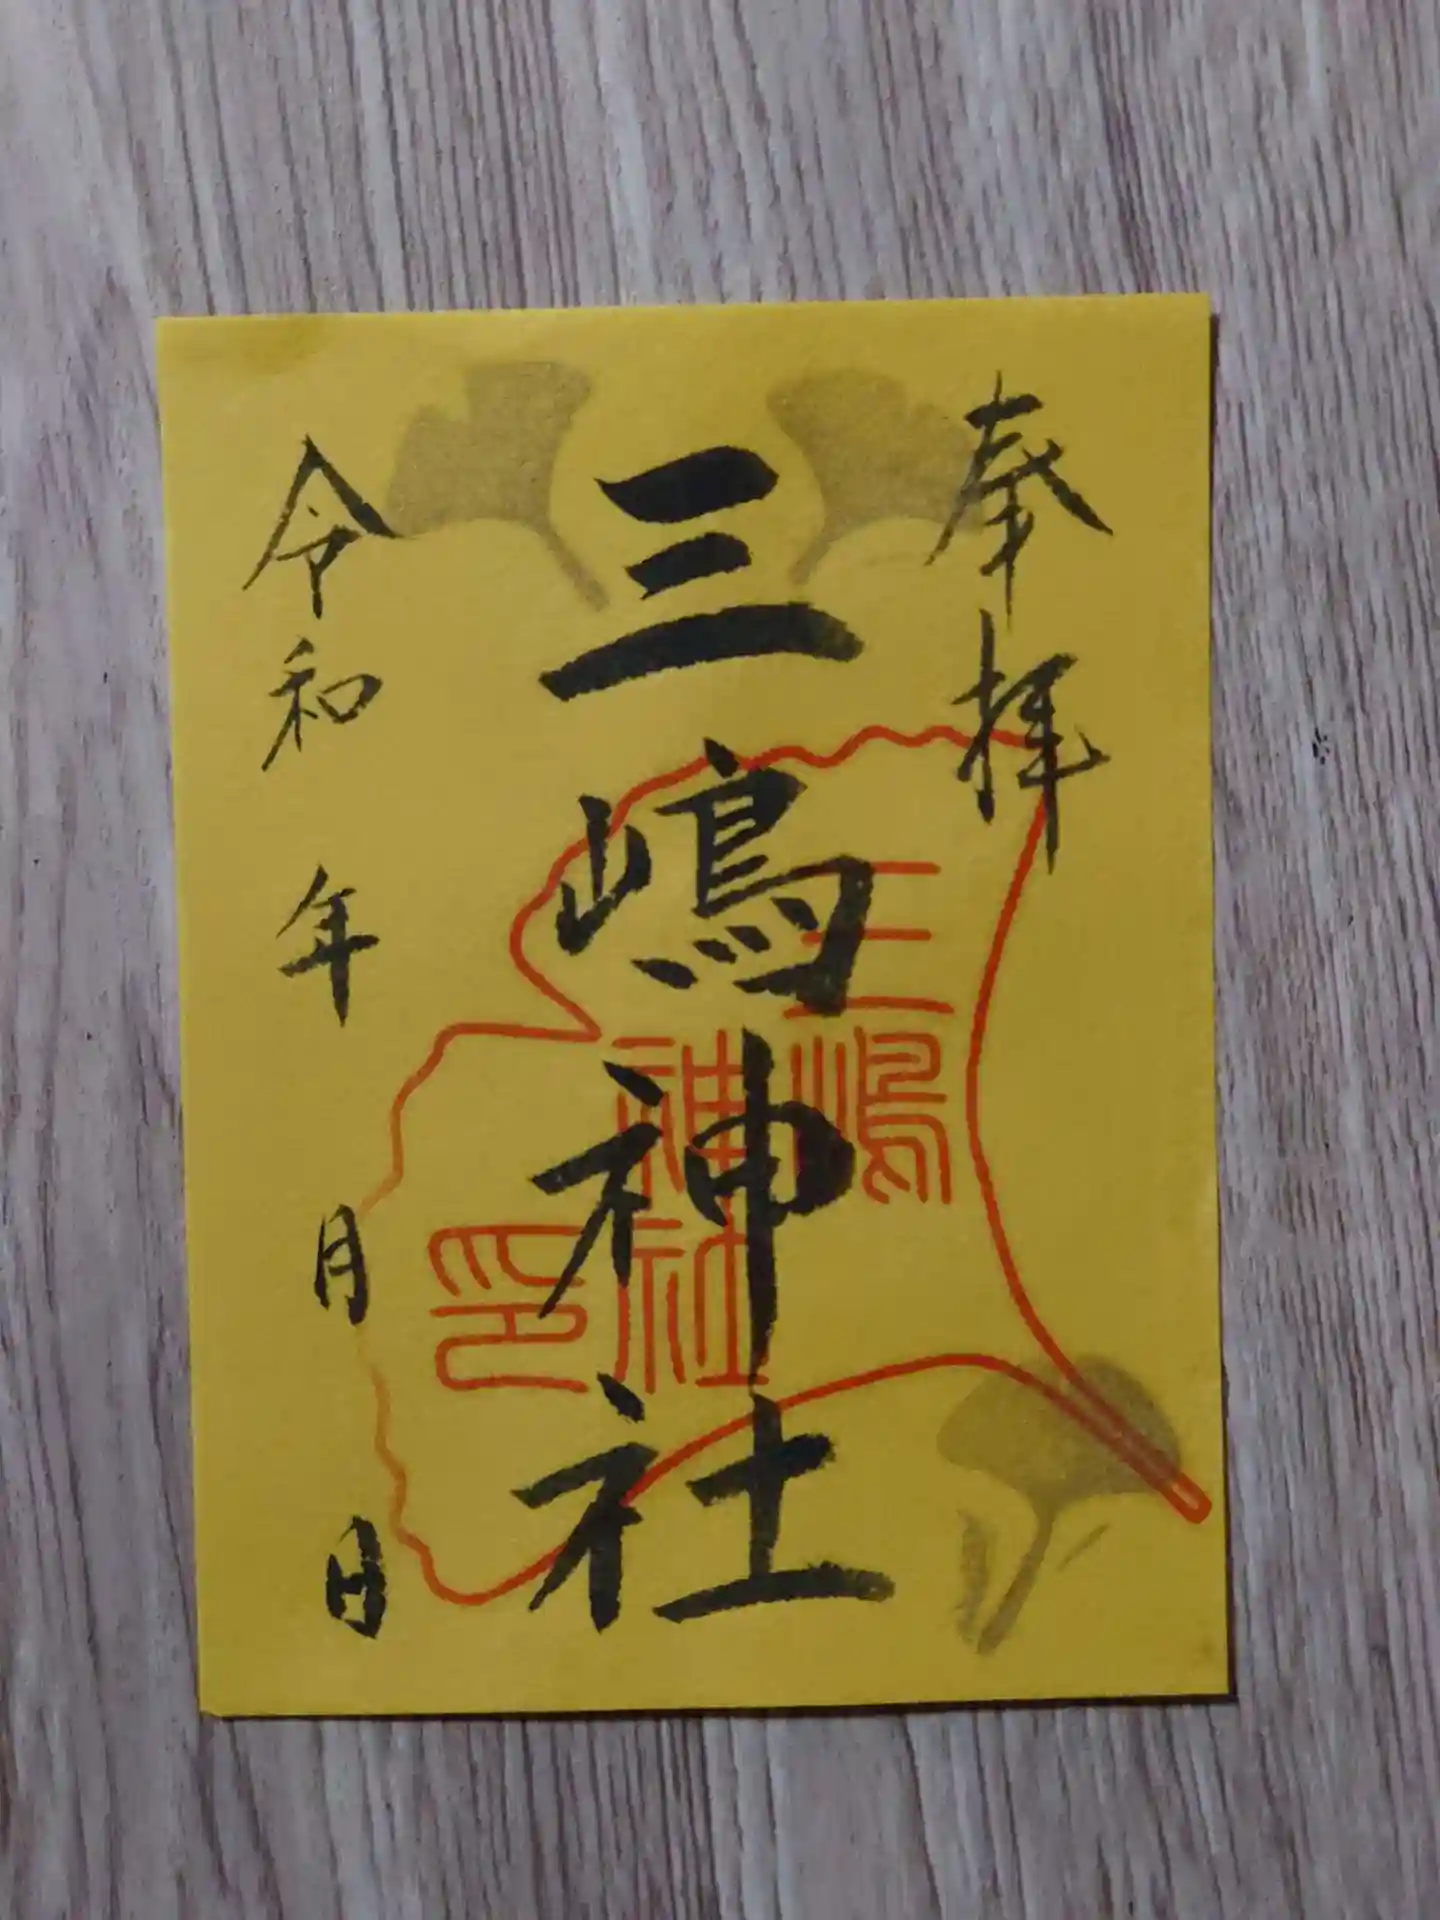 奉拝
三嶋神社
三嶋
神社
印
令和 年 月 日